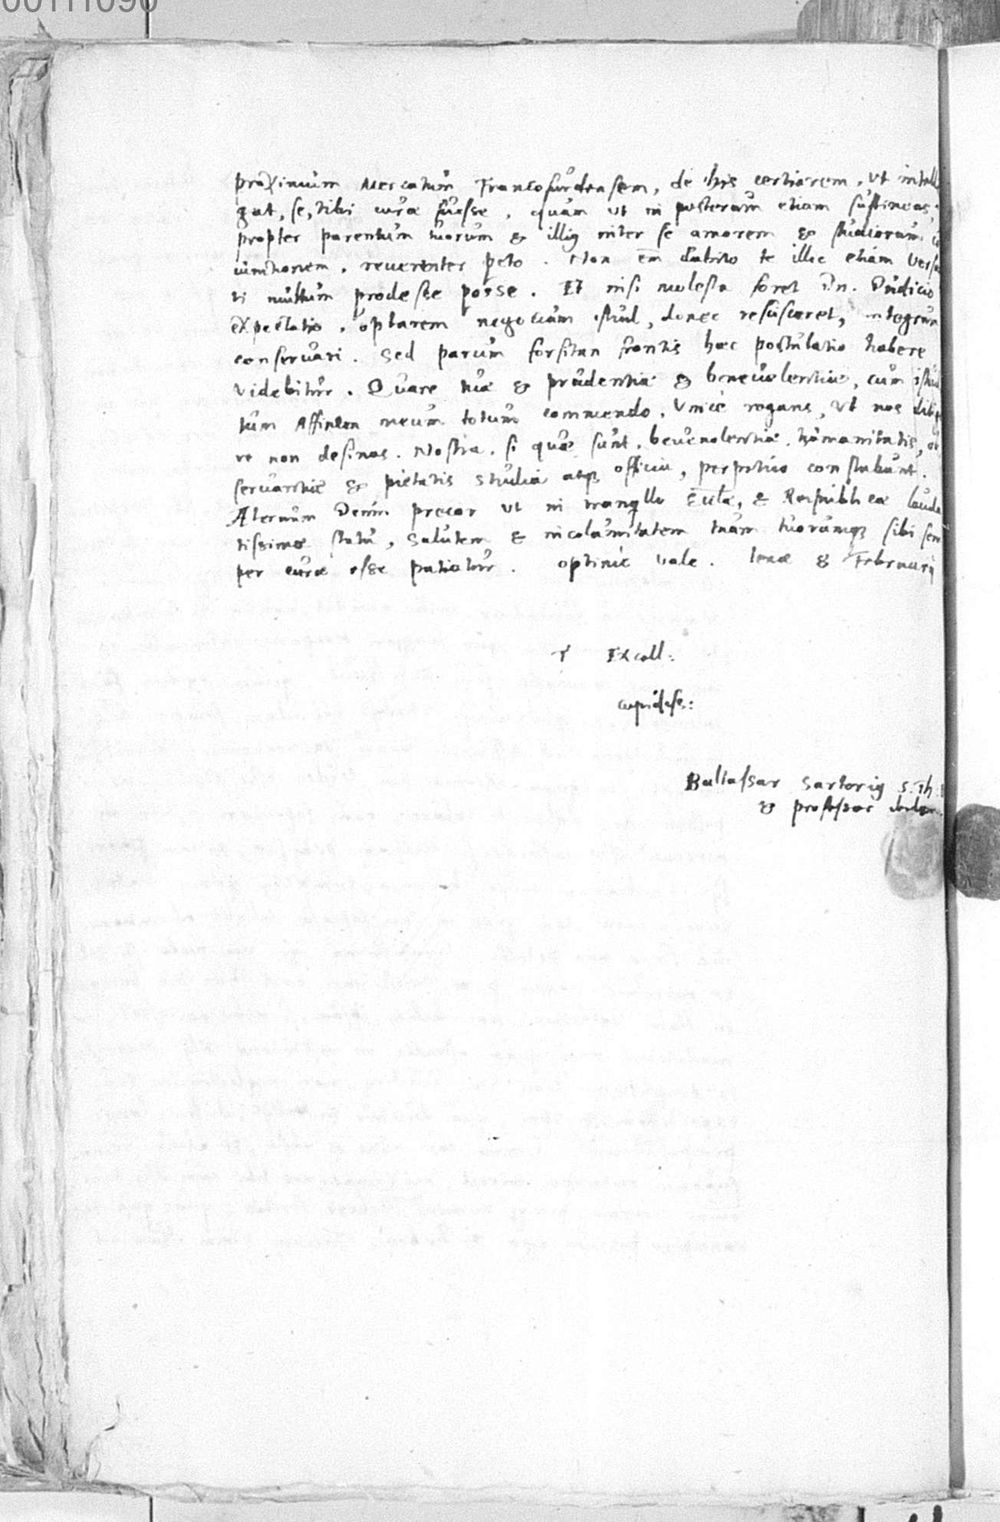 00111090
proximum Mercatum Francofurdensem, de his certiorem, ut intelli
gat, se, tibi curæ fuisse, quam ut in posterum etiam sustineas,
propter parentum tuorum & illius inter se amorem & studiorum
iunctionem, reverenter peto. Non em̄ dubito te illic etiam
ti multum prodesse posse. Et nisi molesta foret Dn. Dudicio
expectatio, optarem negocium istud, donec rescisceret, integrum
conservari. Sed parum forsitan frontis hæc postulatio habere
videbitur. Quare tuæ & prudentiæ & benevolentiæ, cum istud
tum Affinem meum totum commendo. Unicè rogans, ut nos
re non desinas. Nostra, si quæ sunt, benevolentiæ, humanitatis, ob
servantiæ & pietatis studia atq; officia, perpetuò constabunt.
Æternum Deum precor ut in tranq̄llo Eccl̄æ, & Reipublicæ lauda
tissimæ statu, salutem & incolumitatem tuam tuorumq; sibi sem
per curæ esse patiatur. Optimè vale. Ienæ 8 Februarij
T Excell:
cupidiss:
Baltassar Sartorius S. Th:
& professor